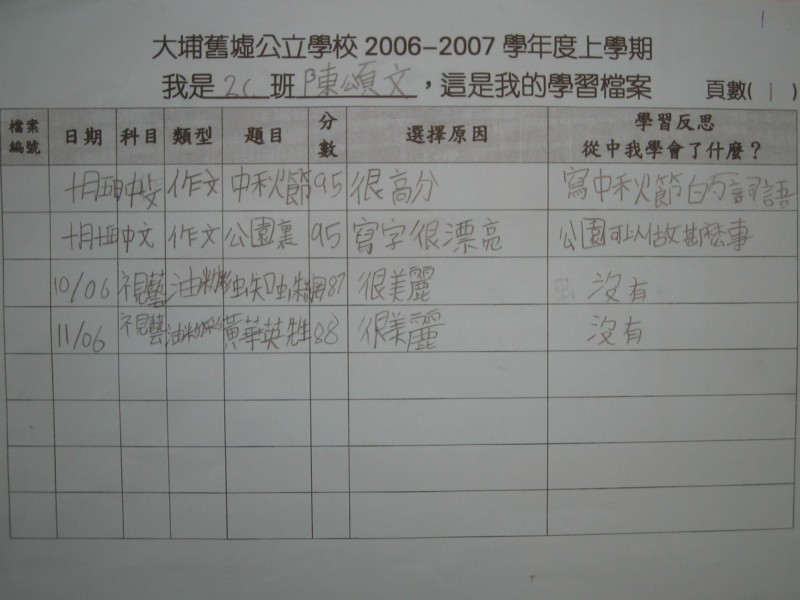 1
大埔舊墟公立學校 2006-2007 學年度上學期
我是 2C 班 陳頌文，這是我的學習檔案 頁數( 1 )
檔案編號 日期 科目 類型 題目 分數 選擇原因 學習反思 從中我學會了什麼？
十月 中文 作文 中秋節 95 很高分 寫中秋節的詞語
十月 中文 作文 公園裏 95 寫字很漂亮 公園可以做甚麼事
10/06 視藝 油粉彩 蜘蛛網 87 很美麗 沒有
11/06 視藝 油粉彩 黃華英 88 很美麗 沒有